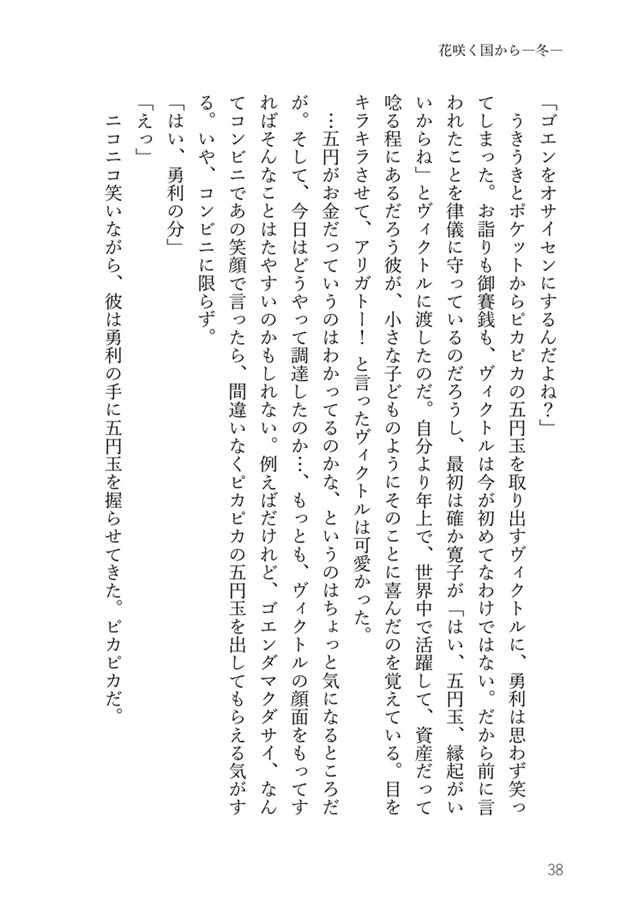 花咲く国から―冬―
「ゴエンをオサイセンにするんだよね?」
うきうきとポケットからピカピカの五円玉を取り出すヴィクトルに、勇利は思わず笑っ
てしまった。お詣りも御賽銭も、ヴィクトルは今が初めてなわけではない。だから前に言
われたことを律儀に守っているのだろうし、最初は確か寛子が「はい、五円玉、縁起がい
いからね」とヴィクトルに渡したのだ。自分より年上で、世界中で活躍して、資産だって
唸る程にあるだろう彼が、小さな子どものようにそのことに喜んだのを覚えている。目を
キラキラさせて、アリガトー! と言ったヴィクトルは可愛かった。
…五円がお金だっていうのはわかってるのかな、というのはちょっと気になるところだ
が。そして、今日はどうやって調達したのか…、もっとも、ヴィクトルの顔面をもってす
ればそんなことはたやすいのかもしれない。例えばだけれど、ゴエンダマクダサイ、なん
てコンビニであの笑顔で言ったら、間違いなくピカピカの五円玉を出してもらえる気がす
る。いや、コンビニに限らず。
「はい、勇利の分」
「えっ」
ニコニコ笑いながら、彼は勇利の手に五円玉を握らせてきた。ピカピカだ。
38